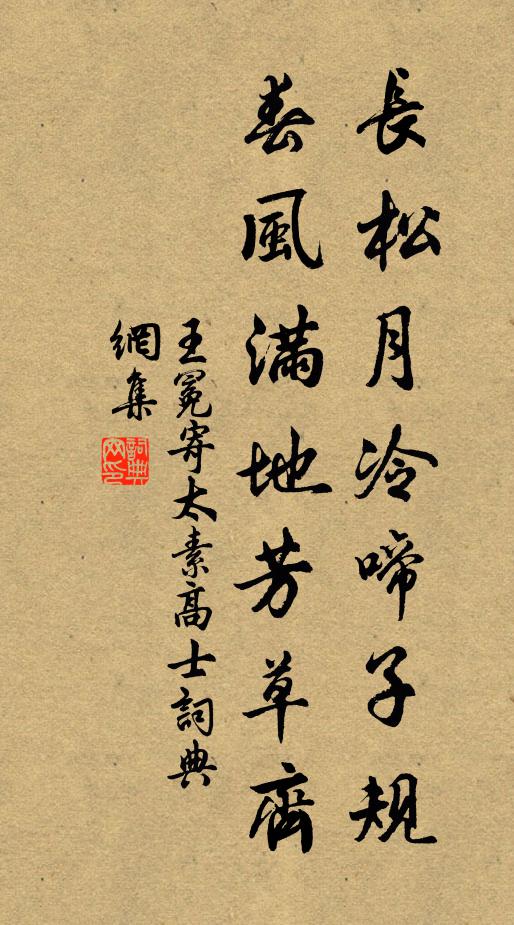 長松月冷啼子規
春風滿地芳草齊
王冕寄太素高士詞典
網集
詞典網印